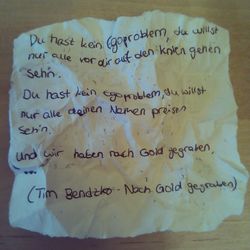 Du hast kein Egoproblem, du willst
nur alle vor dir auf den Knien gehen
Seh'n.
Du hast kein Egoproblem, du willst
nur alle deinen Namen preisen
Seh'n.
Und wir haben nach Gold gegraben.
...
(Tim Bendzko - Nach Gold gegraben)